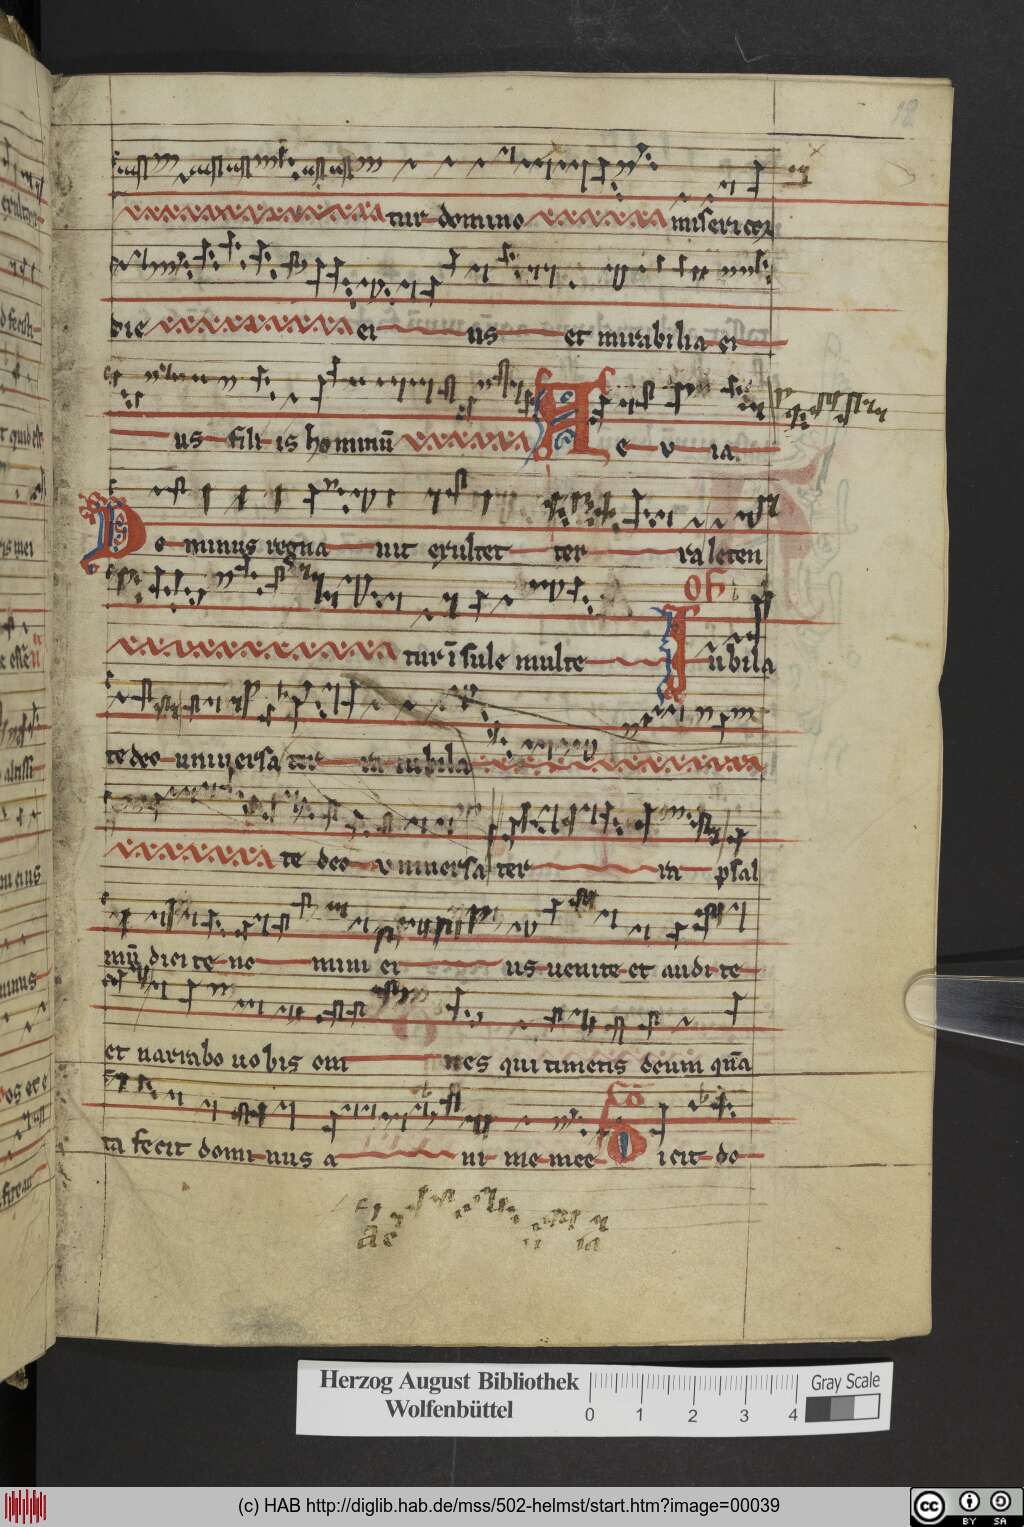 12
tur domino misericor
die ei us et mirabilia ei
us filiis hominū A e v ia
Do minus regna uit exultet ter ra leten
OF
tur ī sule multe Iubila
te deo universa ter ra iubila
te deo universa ter ra psal
mū dicite no mini ei us uenite et audite
et narrabo uobis om nes qui timetis deum qūa
ta fecit dominus a ni me mee
Cō
Dicit do
Ae ia
Herzog August Bibliothek
Wolfenbüttel
0 1 2 3 4
Gray Scale
(c) HAB http://diglib.hab.de/mss/502-helmst/start.htm?image=00039
cc BY SA